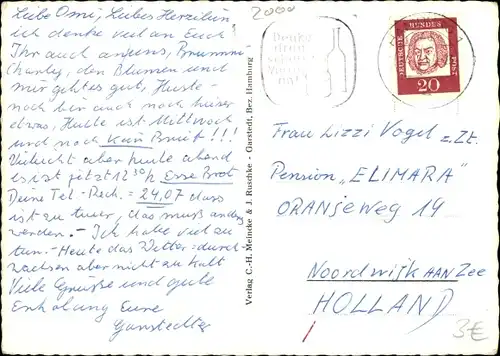 Liebe Omi, Liebes Herzilein,
ich denke viel an Euch!
Ihr auch an uns, Brummi
Charley, den Blumen und
mir geht es gut, Huste-
noch bin auch noch heiser
etwas, Heute ist Mittwoch
und noch kein Brief!!!
Vielleicht aber heute abend
es ist jetzt 12 30h Esse Brot
Deine Tel-Rech. = 24,07 dass
ist zu teuer, das muß anders
werden. - Ich habe viel zu
tun. - Heute das Wetter: durch-
wachsen aber nicht zu kalt
Viele Grüße und gute
Erholung Eure
Verlag C.-H. Meincke & J. Ruschke - Garstedt, Bez. Hamburg
2000
Denke
dran
DEUTSCHE BUNDESPOST
20
Frau Lizzi Vogel z.Zt.
Pension „ELIMARA"
ORANJEWEG 14
Noordwijk AAN Zee
HOLLAND
3€